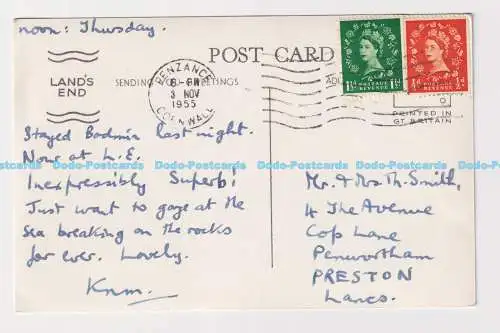 noon: Thursday.
LAND'S
END
POST CARD
SENDING GREETINGS
PENZANCE
6-PM
3 NOV
1955
CORNWALL
POSTAGE
REVENUE
1½D 1½D
POSTAGE
REVENUE
PRINTED IN
GT. BRITAIN
Stayed Bodmin last night.
Now at L.E.
Inexpressibly Superb!
Just want to gaze at the
sea breaking on the rocks
for ever. Lovely.
Knm.
Mr. & Mrs Th. Smith,
4 The Avenue
Cop Lane
Penwortham
PRESTON
Lancs.
Dodo-Postcards Dodo-Postcards Dodo-Postcards Dodo-Postcards Dodo-Postcards Dodo-Postcards